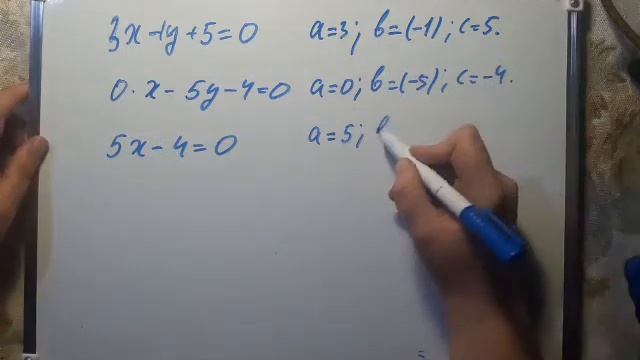 3x - 1y + 5 = 0 a = 3; b = (-1); c = 5.
0 · x - 5y - 4 = 0 a = 0; b = (-5); c = -4.
5x - 4 = 0 a = 5; b